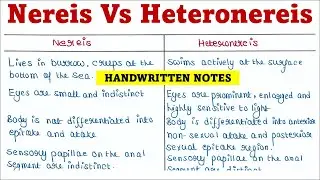 Nereis Vs Heteronereis
Nereis
Heteronereis
Lives in burrow, creeps at the
bottom of the sea.
Swims actively at the surface
HANDWRITTEN NOTES
Eyes are small and indistinct
Eyes are prominent, enlarged and
highly sensitive to light.
Body is not differentiated into
epitoke and atoke
Body is differentiated into anterior
non-sexual atoke and posterior
sexual epitoke region.
Sensory papillae on the anal
segment are indistinct.
Sensory papillae on the anal
segment are distinct